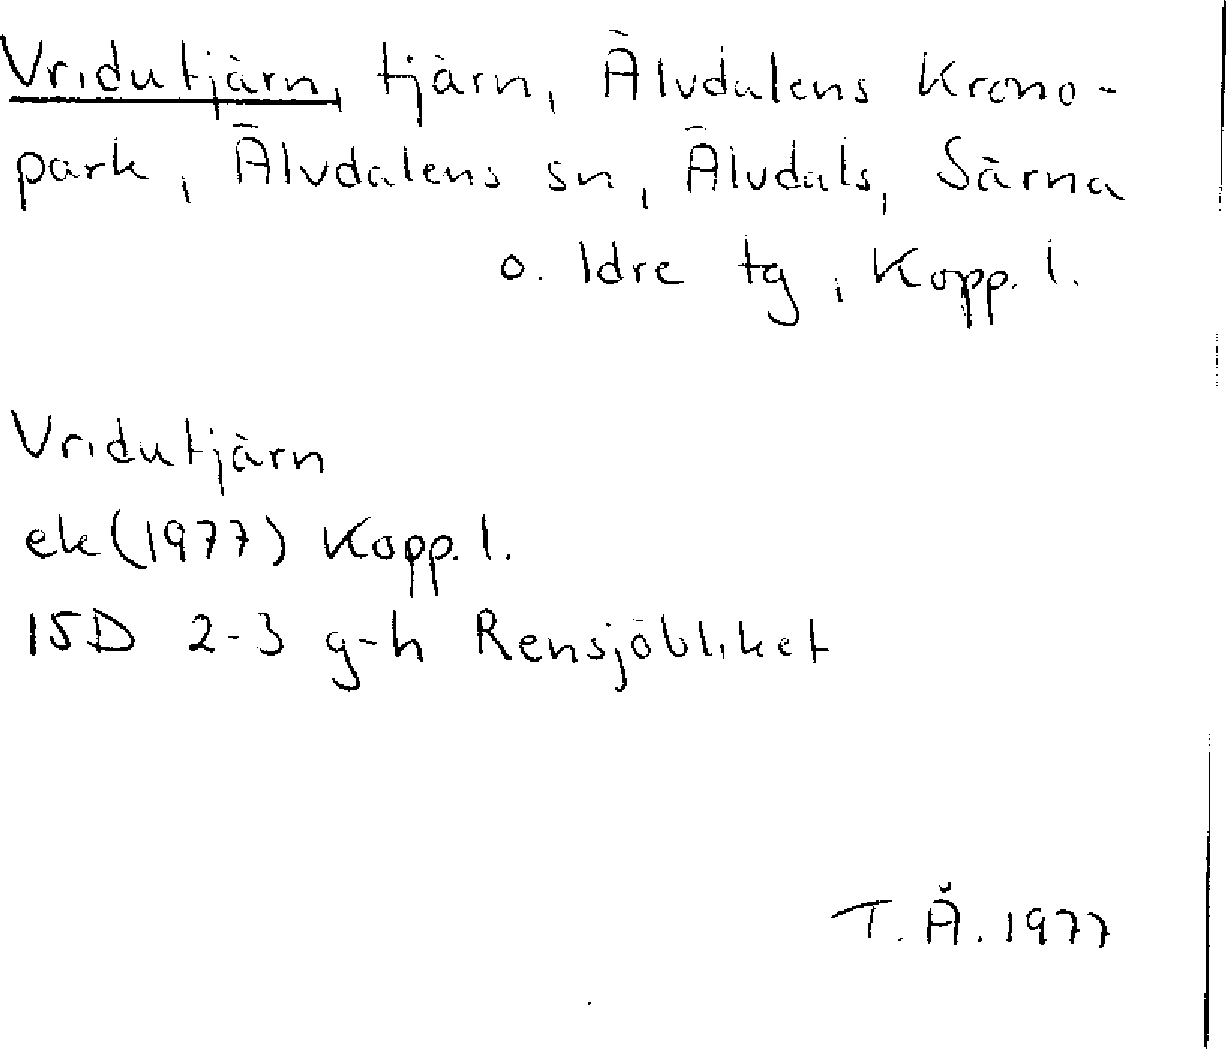 Vridutjärn, tjärn, Älvdalens Krono-
park, Älvdalens sn, Älvdals, Särna
o. Idre tg, Kopp. l.
Vridutjärn
ek (1977) Kopp. l.
15D 2-3 g-h Rensjöbliket
T. Å. 1977